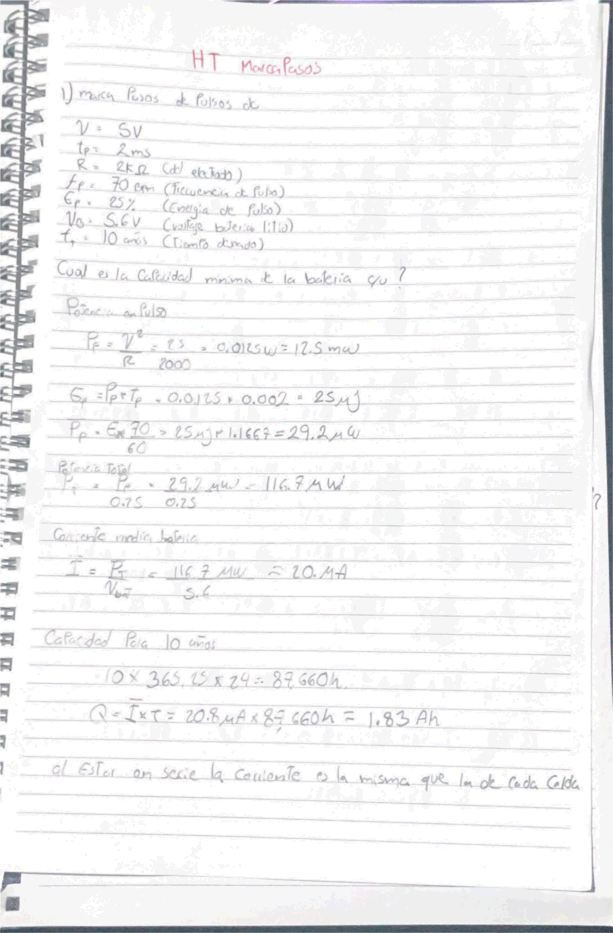 HT MarcaPasos
1) marca Pasos de Pulsos de
V = 5V
tp = 2ms
R = 2KΩ (del electrodo)
fp = 70 ppm (frecuencia de Pulso)
Ep = 25% (Energia de Pulso)
VB = 5.6V (voltaje bateria litio)
t1 = 10 años (Tiempo deseado)
Cual es la Capacidad minima de la bateria cu?
Potencia en Pulso
Pp = V²/R = 25/2000 = 0.0125W = 12.5 mW
Ep = Pp*Tp = 0.0125 * 0.002 = 25 μJ
Pp = Ep* 70/60 = 25 μJ * 1.1667 = 29.2 μW
Potencia Total
PT = Pp/0.25 = 29.2 μW/0.25 = 116.7 μW
Corriente media bateria
I = PT/Vbat = 116.7 μW/5.6 = 20. μA
Capacidad Para 10 años
10 × 365.25 × 24 = 87,660h.
Q = I × T = 20.8 μA × 87,660h = 1.83 Ah
al Estar en serie la corriente es la misma que la de Cada Celda